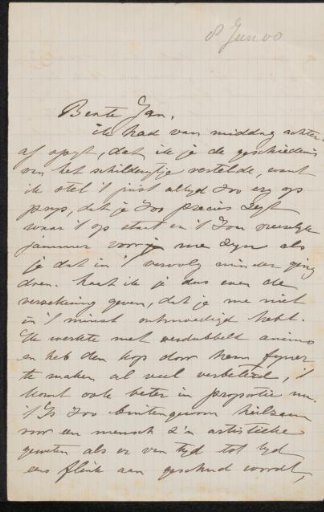 8 Juni 00
Beste Jan,
ik had van middag achter
af spijt, dat ik je de geschiedenis
van het schilderijtje vertelde, want
ik stel 't juist altijd zoo erg op
prijs, dat je zoo precies zegt
waar 't op staat en 't zou vreeselijk
jammer voor me zijn als
je dat in 't vervolg minder ging
doen. Laat ik je dus even de
verzekering geven, dat je me niet
in 't minst ontmoedigd hebt.
Ik werkte met verdubbeld animo
en heb den kop door hem fijner
te maken al veel verbeterd, 't
komt ook beter in proportie nu.
't Is zoo buitengewoon heilzaam
voor een mensch z'n artistieke
geweten als er van tijd tot tijd
eens flink aan geschud wordt,